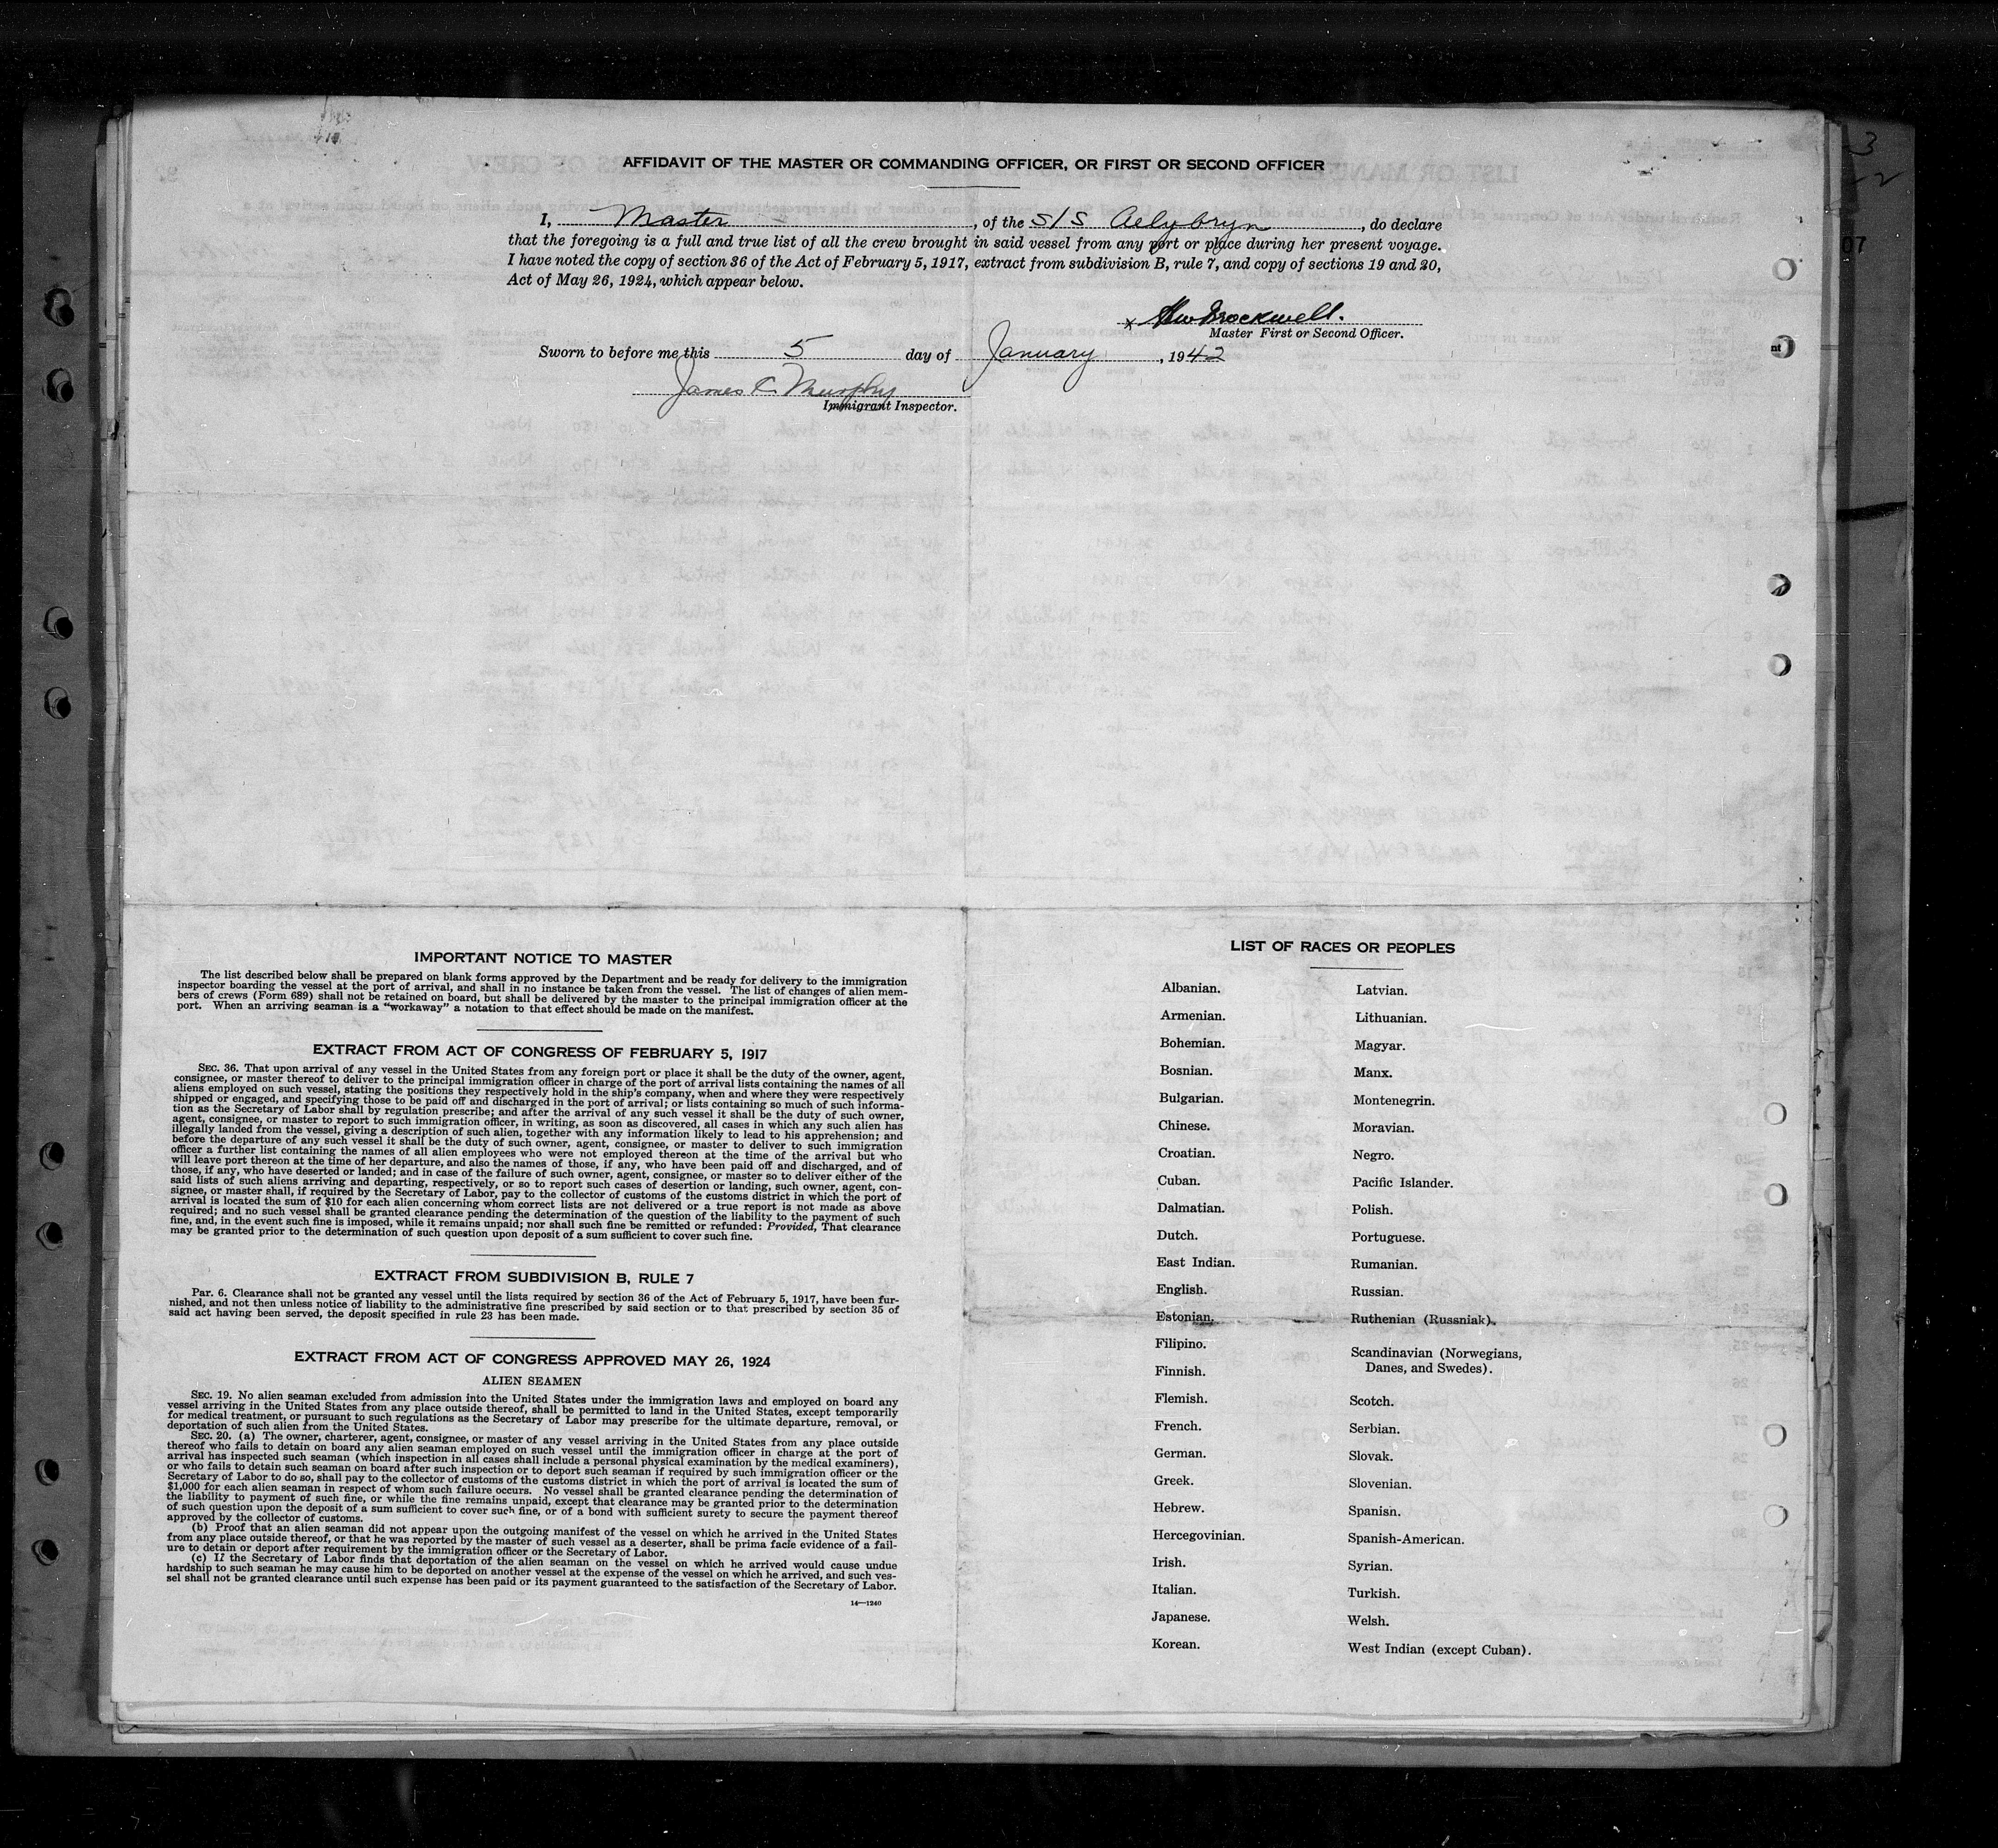 AFFIDAVIT OF THE MASTER OR COMMANDING OFFICER, OR FIRST OR SECOND OFFICER
I, Master, of the S/S Aelybryn, do declare
that the foregoing is a full and true list of all the crew brought in said vessel from any port or place during her present voyage.
I have noted the copy of section 36 of the Act of February 5, 1917, extract from subdivision B, rule 7, and copy of sections 19 and 20,
Act of May 26, 1924, which appear below.
x Brockwell.
Master First or Second Officer.
Sworn to before me this 5 day of January, 1942
James C. Murphy
Immigrant Inspector.
IMPORTANT NOTICE TO MASTER
The list described below shall be prepared on blank forms approved by the Department and be ready for delivery to the immigration
inspector boarding the vessel at the port of arrival, and shall in no instance be taken from the vessel. The list of changes of alien mem-
bers of crews (Form 689) shall not be retained on board, but shall be delivered by the master to the principal immigration officer at the
port. When an arriving seaman is a "workaway" a notation to that effect should be made on the manifest.
EXTRACT FROM ACT OF CONGRESS OF FEBRUARY 5, 1917
SEC. 36. That upon arrival of any vessel in the United States from any foreign port or place it shall be the duty of the owner, agent,
consignee, or master thereof to deliver to the principal immigration officer in charge of the port of arrival lists containing the names of all
aliens employed on such vessel, stating the positions they respectively hold in the ship's company, when and where they were respectively
shipped or engaged, and specifying those to be paid off and discharged in the port of arrival; or lists containing so much of such informa-
tion as the Secretary of Labor shall by regulation prescribe; and after the arrival of any such vessel it shall be the duty of such owner,
agent, consignee, or master to report to such immigration officer, in writing, as soon as discovered, all cases in which any such alien has
illegally landed from the vessel, giving a description of such alien, together with any information likely to lead to his apprehension; and
before the departure of any such vessel it shall be the duty of such owner, agent, consignee, or master to deliver to such immigration
officer a further list containing the names of all alien employees who were not employed thereon at the time of the arrival but who
will leave port thereon at the time of her departure, and also the names of those, if any, who have been paid off and discharged, and of
those, if any, who have deserted or landed; and in case of the failure of such owner, agent, consignee, or master so to deliver either of the
said lists of such aliens arriving and departing, respectively, or so to report such cases of desertion or landing, such owner, agent, con-
signee, or master shall, if required by the Secretary of Labor, pay to the collector of customs of the customs district in which the port of
arrival is located the sum of $10 for each alien concerning whom correct lists are not delivered or a true report is not made as above
required; and no such vessel shall be granted clearance pending the determination of the question of the liability to the payment of such
fine, and, in the event such fine is imposed, while it remains unpaid; nor shall such fine be remitted or refunded: Provided, That clearance
may be granted prior to the determination of such question upon deposit of a sum sufficient to cover such fine.
EXTRACT FROM SUBDIVISION B, RULE 7
Par. 6. Clearance shall not be granted any vessel until the lists required by section 36 of the Act of February 5, 1917, have been fur-
nished, and not then unless notice of liability to the administrative fine prescribed by said section or to that prescribed by section 35 of
said act having been served, the deposit specified in rule 23 has been made.
EXTRACT FROM ACT OF CONGRESS APPROVED MAY 26, 1924
ALIEN SEAMEN
SEC. 19. No alien seaman excluded from admission into the United States under the immigration laws and employed on board any
vessel arriving in the United States from any place outside thereof, shall be permitted to land in the United States, except temporarily
for medical treatment, or pursuant to such regulations as the Secretary of Labor may prescribe for the ultimate departure, removal, or
deportation of such alien from the United States.
SEC. 20. (a) The owner, charterer, agent, consignee, or master of any vessel arriving in the United States from any place outside
thereof who fails to detain on board any alien seaman employed on such vessel until the immigration officer in charge at the port of
arrival has inspected such seaman (which inspection in all cases shall include a personal physical examination by the medical examiners),
or who fails to detain such seaman on board after such inspection or to deport such seaman if required by such immigration officer or the
Secretary of Labor to do so, shall pay to the collector of customs of the customs district in which the port of arrival is located the sum of
$1,000 for each alien seaman in respect of whom such failure occurs. No vessel shall be granted clearance pending the determination of
the liability to payment of such fine, or while the fine remains unpaid, except that clearance may be granted prior to the determination
of such question upon the deposit of a sum sufficient to cover such fine, or of a bond with sufficient surety to secure the payment thereof
approved by the collector of customs.
(b) Proof that an alien seaman did not appear upon the outgoing manifest of the vessel on which he arrived in the United States
from any place outside thereof, or that he was reported by the master of such vessel as a deserter, shall be prima facie evidence of a fail-
ure to detain or deport after requirement by the immigration officer or the Secretary of Labor.
(c) If the Secretary of Labor finds that deportation of the alien seaman on the vessel on which he arrived would cause undue
hardship to such seaman he may cause him to be deported on another vessel at the expense of the vessel on which he arrived, and such ves-
sel shall not be granted clearance until such expense has been paid or its payment guaranteed to the satisfaction of the Secretary of Labor.
14—1240
LIST OF RACES OR PEOPLES
Albanian.
Armenian.
Bohemian.
Bosnian.
Bulgarian.
Chinese.
Croatian.
Cuban.
Dalmatian.
Dutch.
East Indian.
English.
Estonian.
Filipino.
Finnish.
Flemish.
French.
German.
Greek.
Hebrew.
Hercegovinian.
Irish.
Italian.
Japanese.
Korean.
Latvian.
Lithuanian.
Magyar.
Manx.
Montenegrin.
Moravian.
Negro.
Pacific Islander.
Polish.
Portuguese.
Rumanian.
Russian.
Ruthenian (Russniak).
Scandinavian (Norwegians,
Danes, and Swedes).
Scotch.
Serbian.
Slovak.
Slovenian.
Spanish.
Spanish-American.
Syrian.
Turkish.
Welsh.
West Indian (except Cuban).